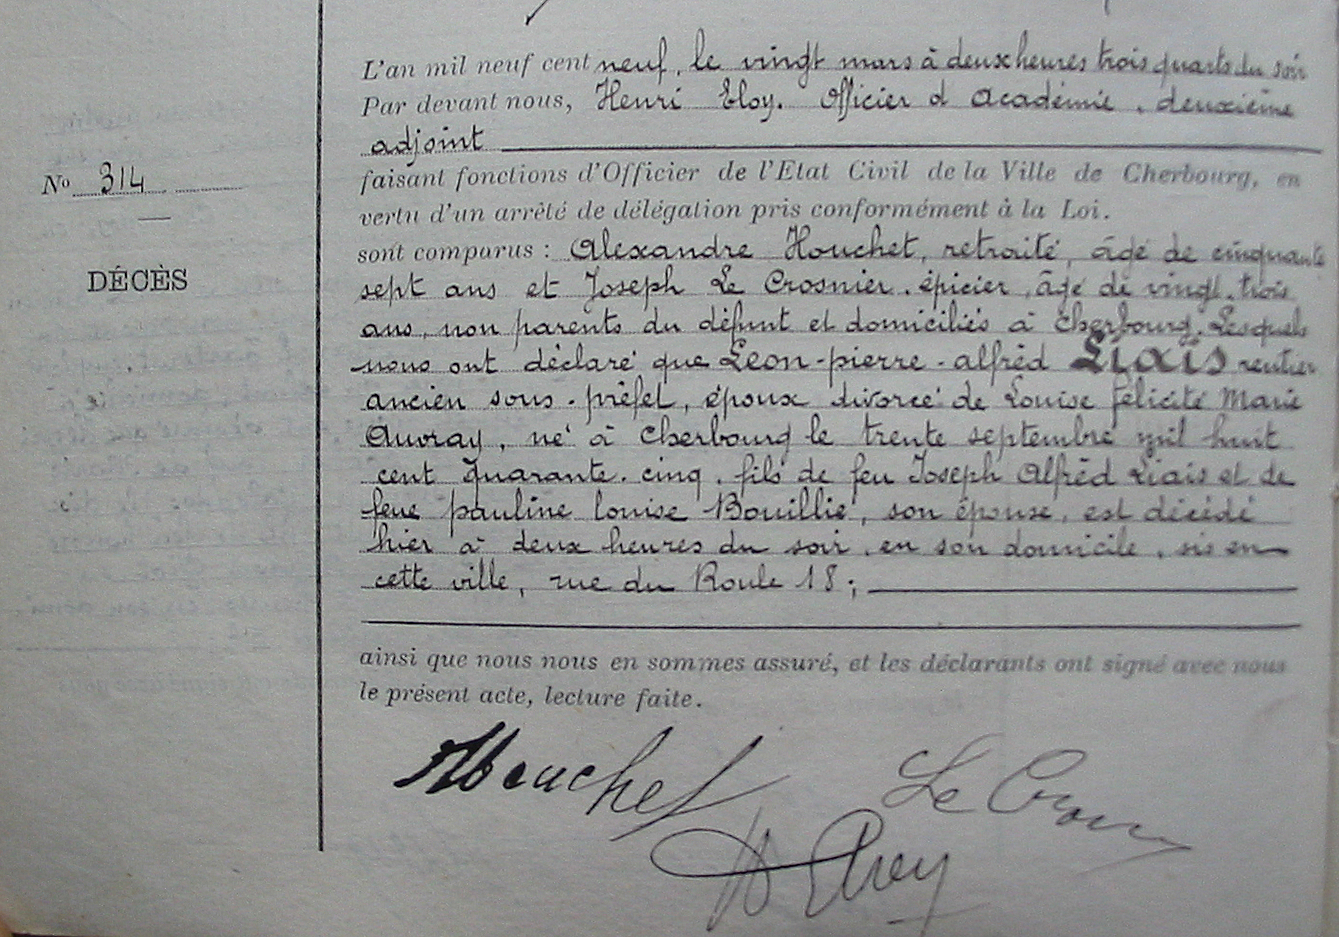 L'an mil neuf cent neuf, le vingt mars à deux heures trois quarts du soir
Par devant nous, Henri Eloy, Officier d'Académie, deuxième
adjoint
faisant fonctions d'Officier de l'Etat Civil de la Ville de Cherbourg, en
vertu d'un arrêté de délégation pris conformément à la Loi.
sont comparus : Alexandre Houchet, retraité, âgé de cinquante
sept ans et Joseph Le Crosnier, épicier, âgé de vingt-trois
ans, non parents du défunt et domiciliés à Cherbourg. Lesquels
nous ont déclaré que Léon-pierre-alfréd Liais rentier
ancien sous-préfet, époux divorcé de Louise félicité Marie
Auvray, né à Cherbourg le trente septembre mil huit
cent quarante-cinq, fils de feu Joseph Alfréd Liais et de
feue pauline louise Bouillié, son épouse, est décédé
hier à deux heures du soir, en son domicile, sis en
cette ville, rue du Roule 18 ;
ainsi que nous nous en sommes assuré, et les déclarants ont signé avec nous
le présent acte, lecture faite.
No 314
DÉCÈS
Houchet
Le Cros
H Eloy